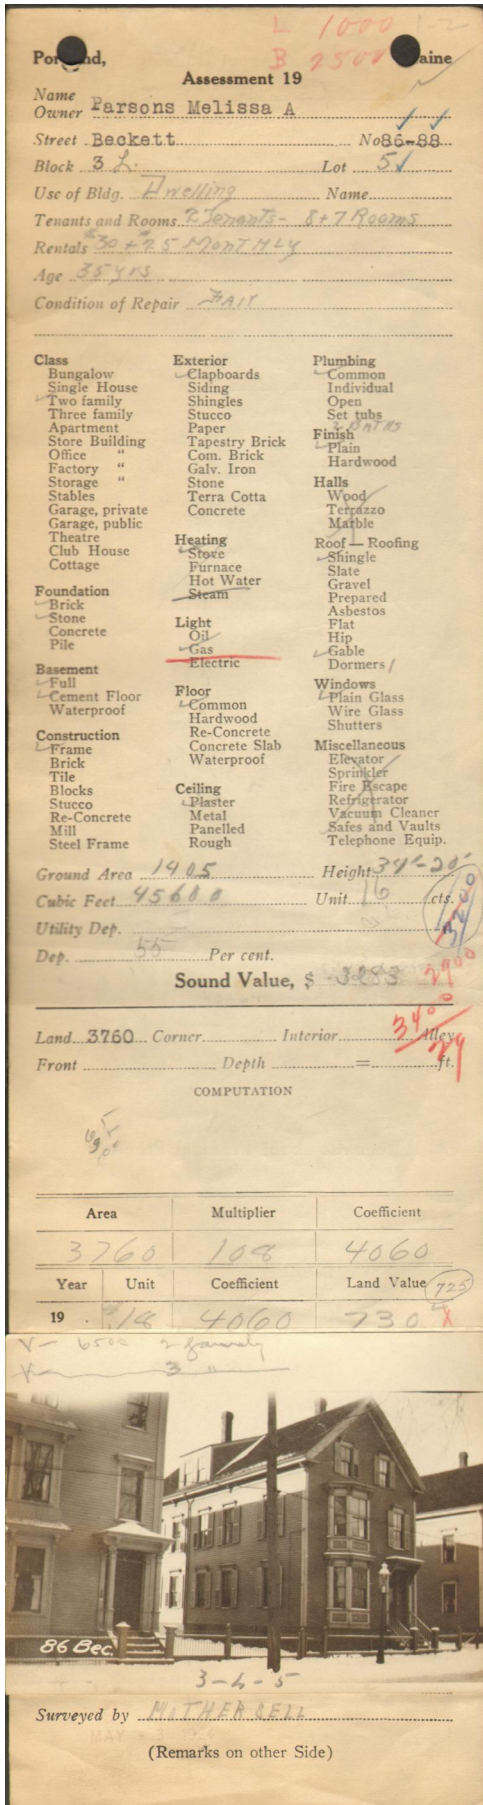 L 1000 1-2
B 2500
Portland, Maine
Assessment 19
Name
Owner Parsons Melissa A
Street Beckett No 86-88
Block 3 L. Lot 5
Use of Bldg. Dwelling Name
Tenants and Rooms 2 Tenants- 8+7 Rooms
Rentals $30 + $25 MONTHLY
Age 35 yrs
Condition of Repair FAIR
Class
Bungalow
Single House
Two family
Three family
Apartment
Store Building
Office "
Factory "
Storage "
Stables
Garage, private
Garage, public
Theatre
Club House
Cottage
Foundation
Brick
Stone
Concrete
Pile
Basement
Full
Cement Floor
Waterproof
Construction
Frame
Brick
Tile
Blocks
Stucco
Re-Concrete
Mill
Steel Frame
Exterior
Clapboards
Siding
Shingles
Stucco
Paper
Tapestry Brick
Com. Brick
Galv. Iron
Stone
Terra Cotta
Concrete
Heating
Stove
Furnace
Hot Water
Steam
Light
Oil
Gas
Electric
Floor
Common
Hardwood
Re-Concrete
Concrete Slab
Waterproof
Ceiling
Plaster
Metal
Panelled
Rough
Plumbing
Common
Individual
Open
Set tubs
2 BATHS
Finish
Plain
Hardwood
Halls
Wood
Terrazzo
Marble
Roof — Roofing
Shingle
Slate
Gravel
Prepared
Asbestos
Flat
Hip
Gable
Dormers 1
Windows
Plain Glass
Wire Glass
Shutters
Miscellaneous
Elevator
Sprinkler
Fire Escape
Refrigerator
Vacuum Cleaner
Safes and Vaults
Telephone Equip.
Ground Area 1405 Height 34'-20'
Cubic Feet 45600 Unit 16 cts.
3200
Utility Dep.
Dep. 55 Per cent.
2900
Sound Value, $ 3283
3400
29
Land 3760 Corner Interior Alley
Front Depth = ft.
COMPUTATION
Area Multiplier Coefficient
3760 108 4060
Year Unit Coefficient Land Value 725
19 $18 4060 730 X
V- 6500 2 family
V- 3 "
86 Bec.
3-L-5
Surveyed by MOTHERSELL
MAY
(Remarks on other Side)